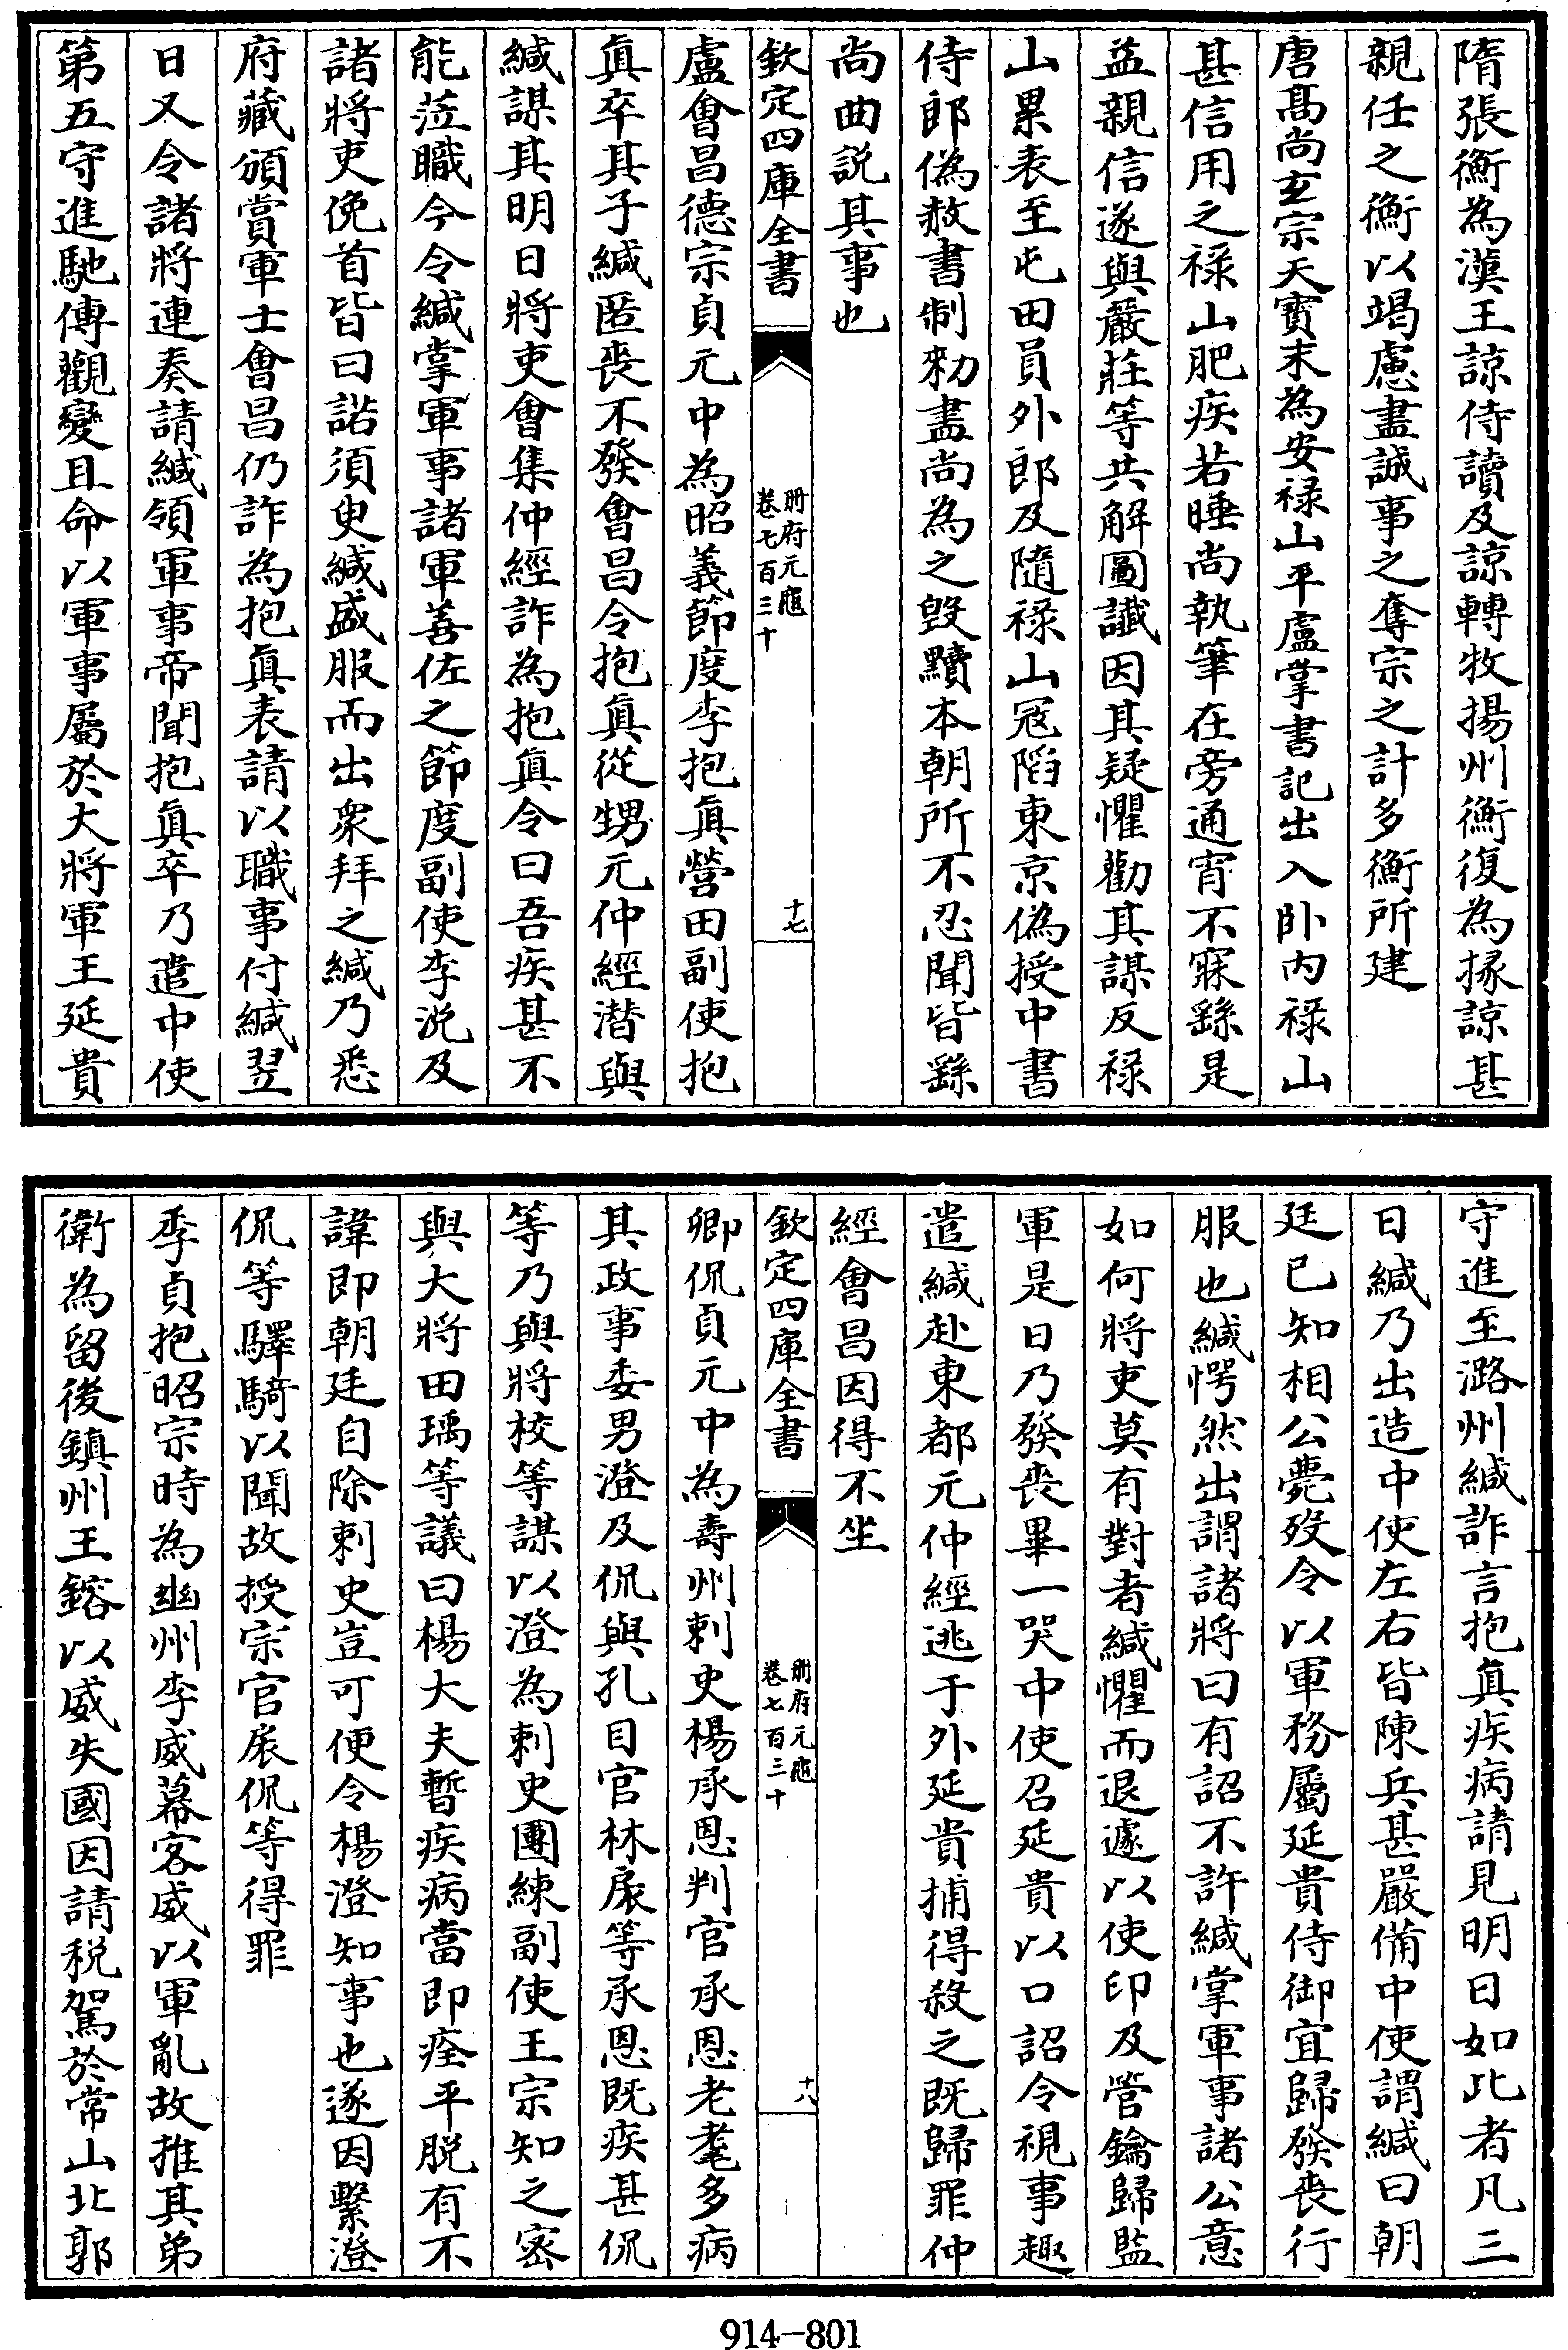 隋張衡為漢王諒侍讀及諒轉牧揚州衡復為掾諒甚
親任之衡以竭慮盡誠事之奪宗之計多衡所建
唐高尚玄宗天寳末為安禄山平盧掌書記出入卧内禄山
甚信用之禄山肥疾若睡尚執筆在旁通宵不寐繇是
益親信遂與嚴莊等共解圖讖因其疑懼勸其謀反禄
山累表至屯田員外郎及隨禄山冦陷東京偽授中書
侍郎偽赦書制勑盡尚為之毁黷本朝所不忍聞皆繇
尚曲説其事也
欽定四庫全書
冊府元龜
卷七百三十
十七
盧會昌德宗貞元中為昭義節度李抱真營田副使抱
真卒其子緘匿喪不發會昌令抱真從甥元仲經潜與
緘謀其明日將吏會集仲經詐為抱真令曰吾疾甚不
能蒞職今令緘掌軍事諸軍善佐之節度副使李説及
諸將吏俛首皆曰諾須臾緘盛服而出衆拜之緘乃悉
府藏頒賞軍士會昌仍詐為抱真表請以職事付緘翌
日又令諸將連奏請緘領軍事帝聞抱真卒乃遣中使
第五守進馳傳觀變且命以軍事屬於大將軍王延貴
守進至潞州緘詐言抱真疾病請見明日如此者凡三
日緘乃出造中使左右皆陳兵甚嚴備中使謂緘曰朝
廷已知相公薨殁令以軍務屬延貴侍御宜歸發喪行
服也緘愕然出謂諸將曰有詔不許緘掌軍事諸公意
如何將吏莫有對者緘懼而退遽以使印及管鑰歸監
軍是日乃發喪畢一哭中使召延貴以口詔令視事趣
遣緘赴東都元仲經逃于外延貴捕得殺之既歸罪仲
經會昌因得不坐
欽定四庫全書
冊府元龜
卷七百三十
十八
卿侃貞元中為壽州刺史楊承恩判官承恩老耄多病
其政事委男澄及侃與孔目官林扆等承恩既疾甚侃
等乃與將校等謀以澄為刺史團練副使王宗知之密
與大將田瑀等議曰楊大夫暫疾病當即痊平脱有不
諱即朝廷自除刺史豈可便令楊澄知事也遂因繫澄
侃等驛騎以聞故授宗官扆侃等得罪
李貞抱昭宗時為幽州李威幕客威以軍亂故推其弟
衛為留後鎮州王鎔以威失國因請税駕於常山北郭
914-801